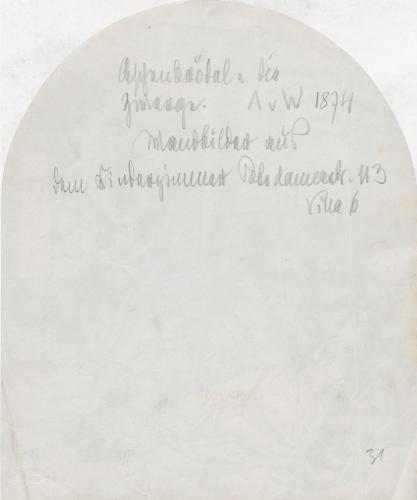 Aschenbrödel u die
Zwerge. A v W 1874
Wandbilder aus
dem Kinderzimmer Potsdamerstr. 113
Villa 6
31